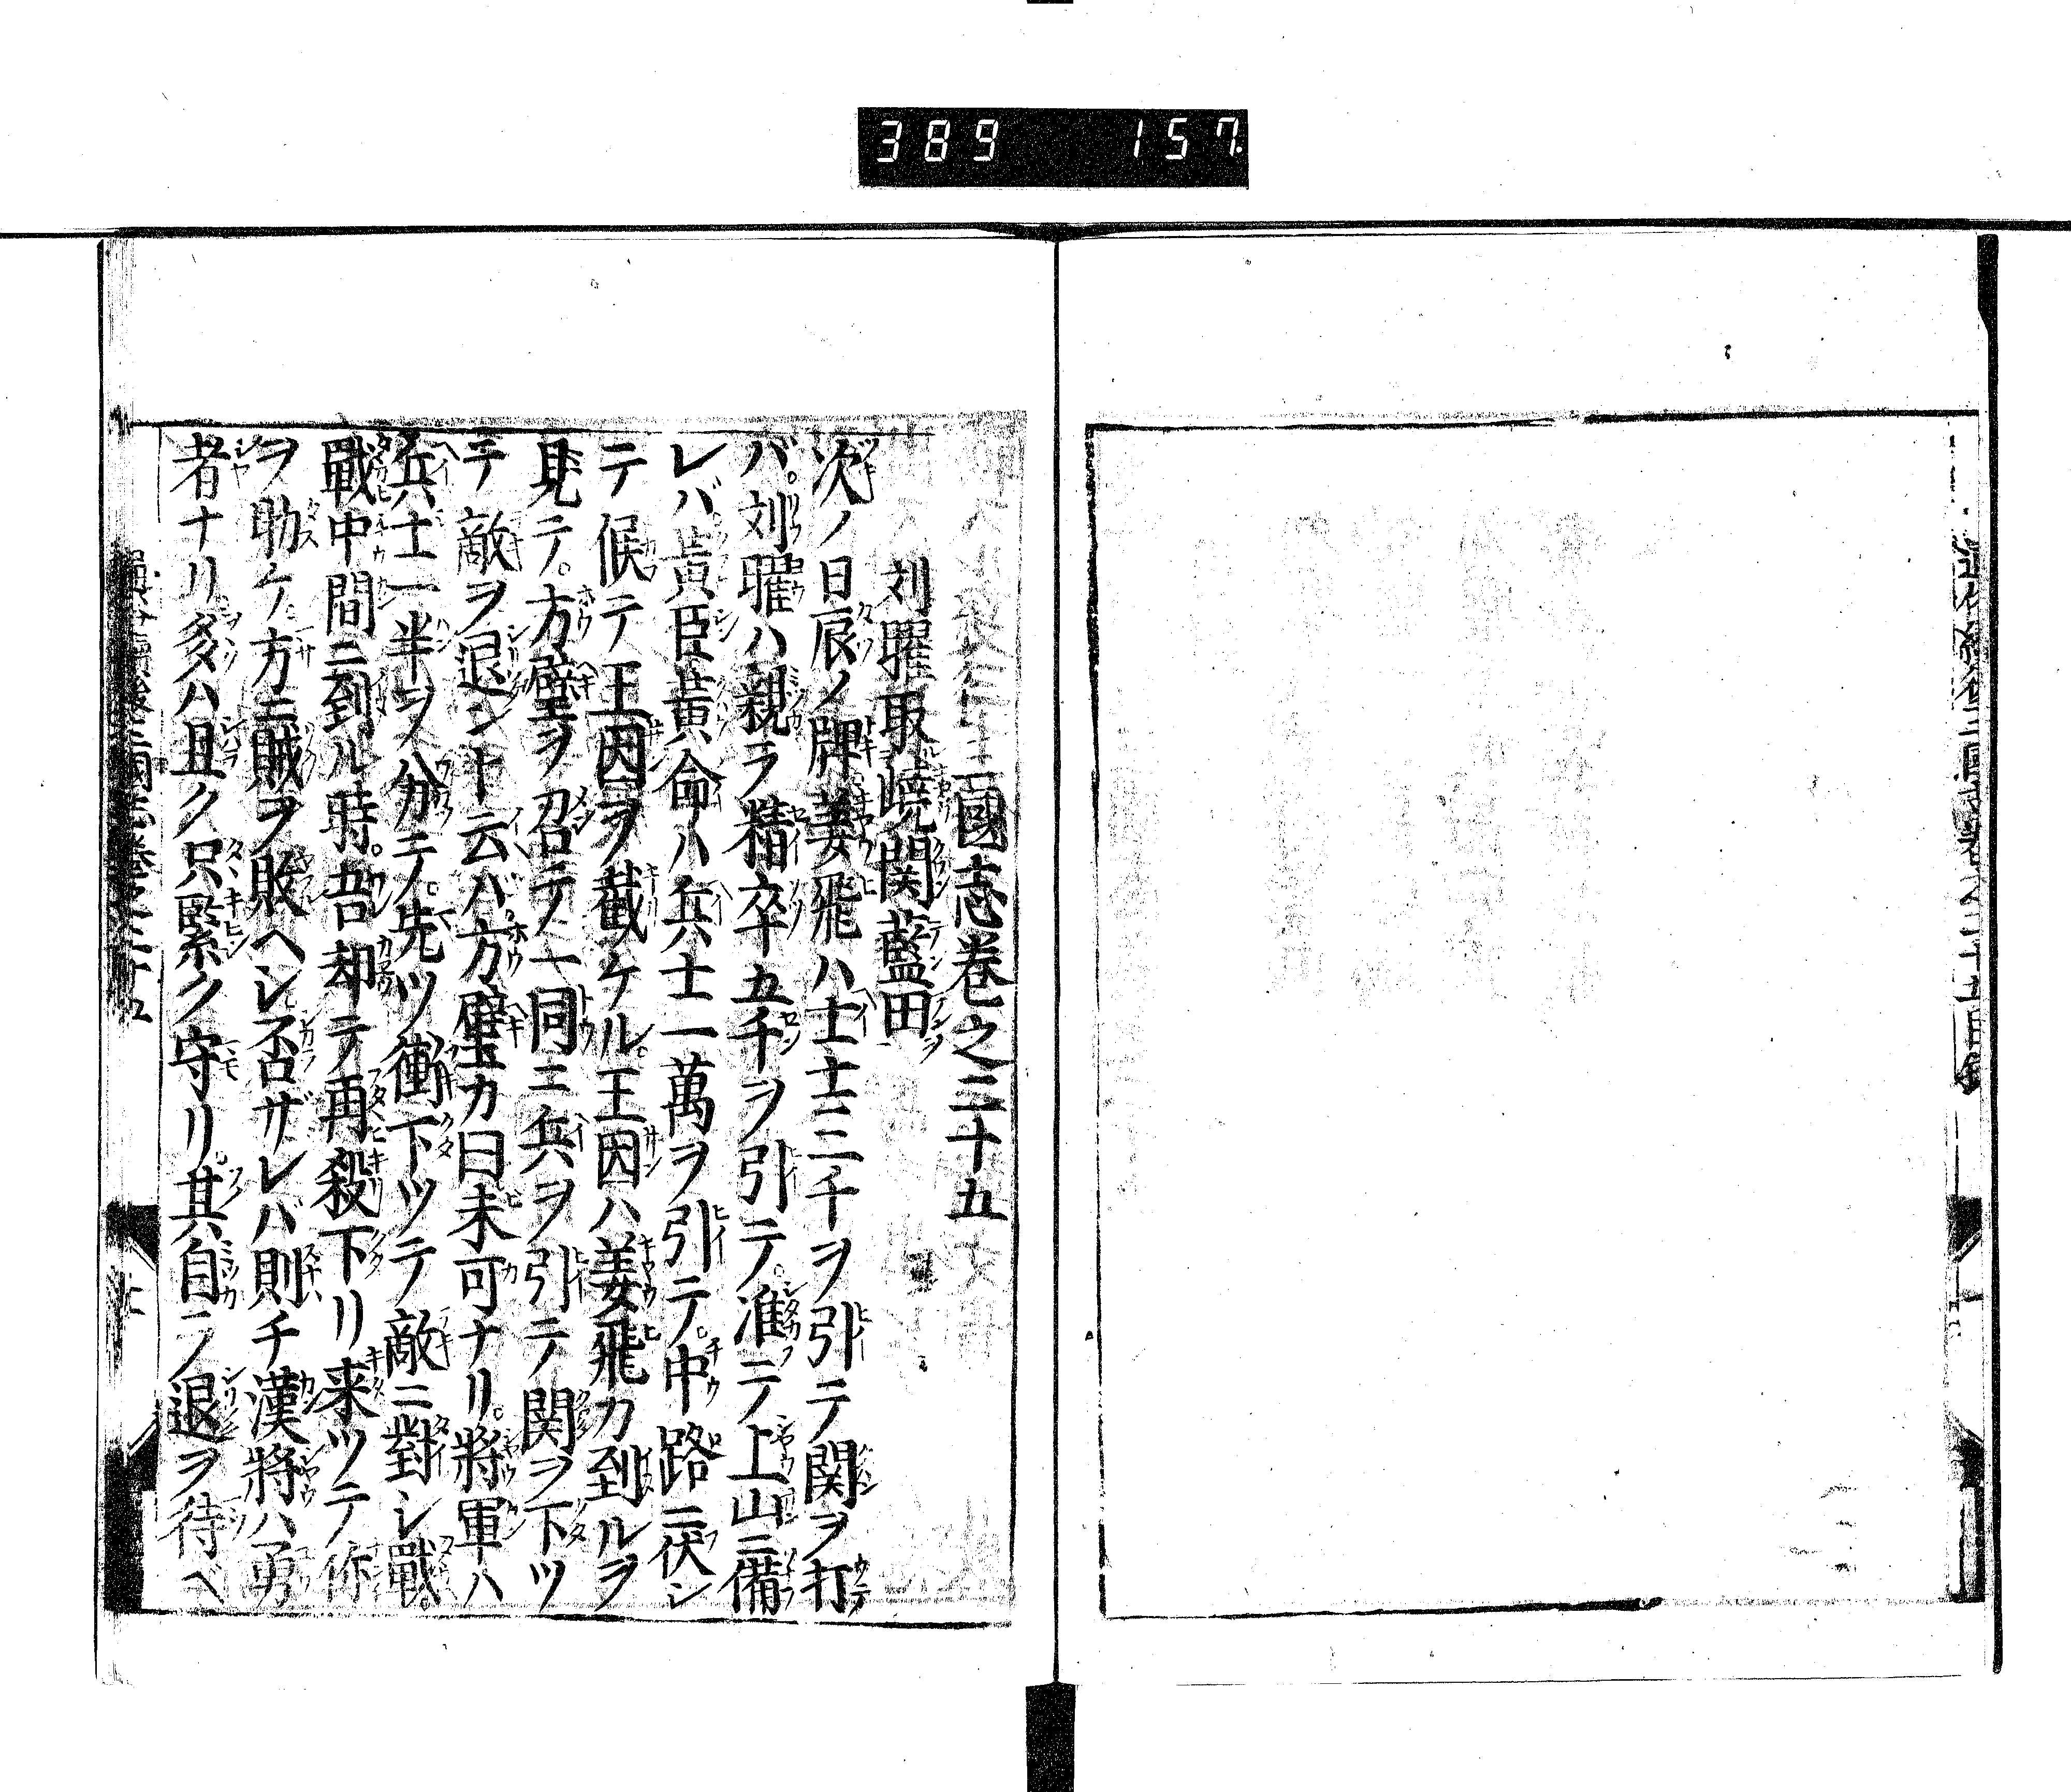 389 157
國志巻之三十五
刘曜取嶢関藍田
次ノ日辰ノ牌姜飛ハ士士二千ヲ引テ関ヲ打
バ。刘曜ハ親ラ精卒五千ヲ引テ。准テ上山ニ備
レバ黄臣黄命ハ兵士一萬ヲ引テ。中路ニ伏シ
テ候テ王因ヲ截ケル。王因ハ姜飛カ到ルヲ
見テ。方壁ヲ召テ一同ニ兵ヲ引テ関ヲ下ツ
テ敵ヲ退ント云バ。方壁カ曰未可ナリ。將軍ハ
兵士一半ヲ分テ。先ツ衝下ツテ敵ニ對シ戰。
戰中間ニ到ル時。吾却テ再殺下リ来ツテ作
ヲ助ケ方ニ賊ヲ敗ヘシ否ザレバ則チ漢將ハ勇
者ナリ多ハ且ク只緊ク守リ。其自ラ退ヲ待ベ